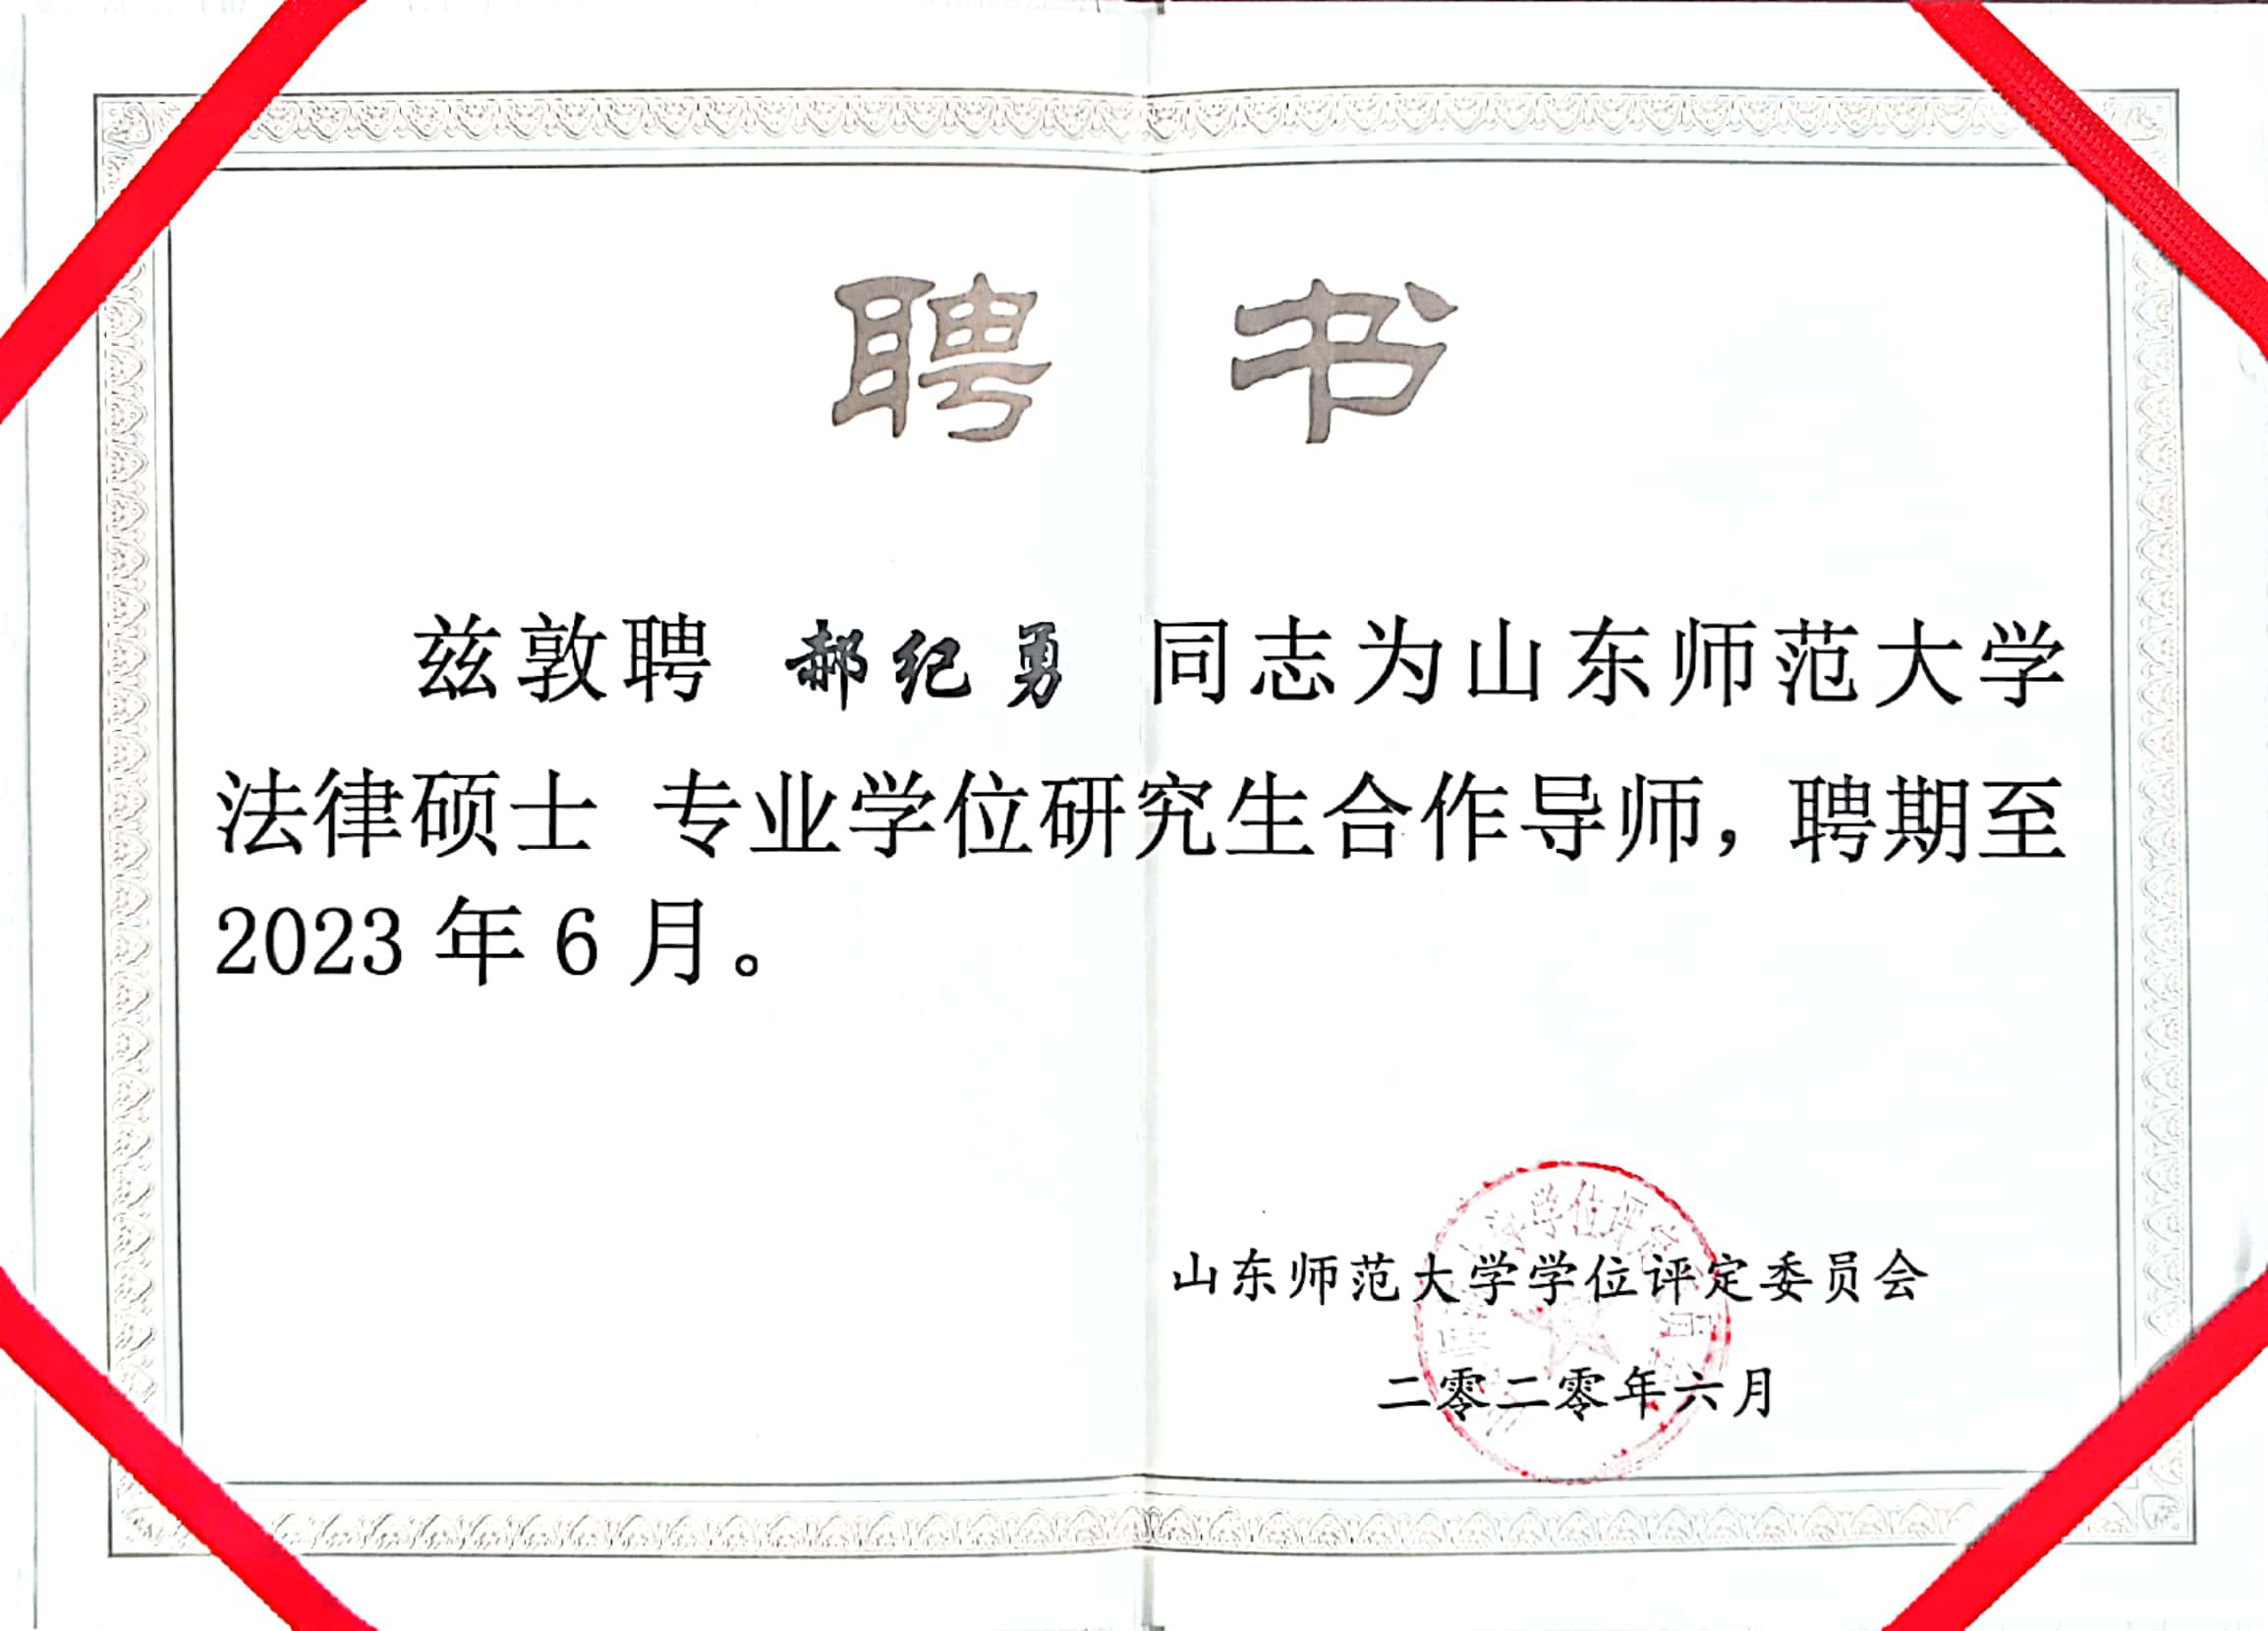 聘书
兹敦聘 郝纪勇 同志为山东师范大学
法律硕士 专业学位研究生合作导师，聘期至
2023年6月。
山东师范大学学位评定委员会
二零二零年六月